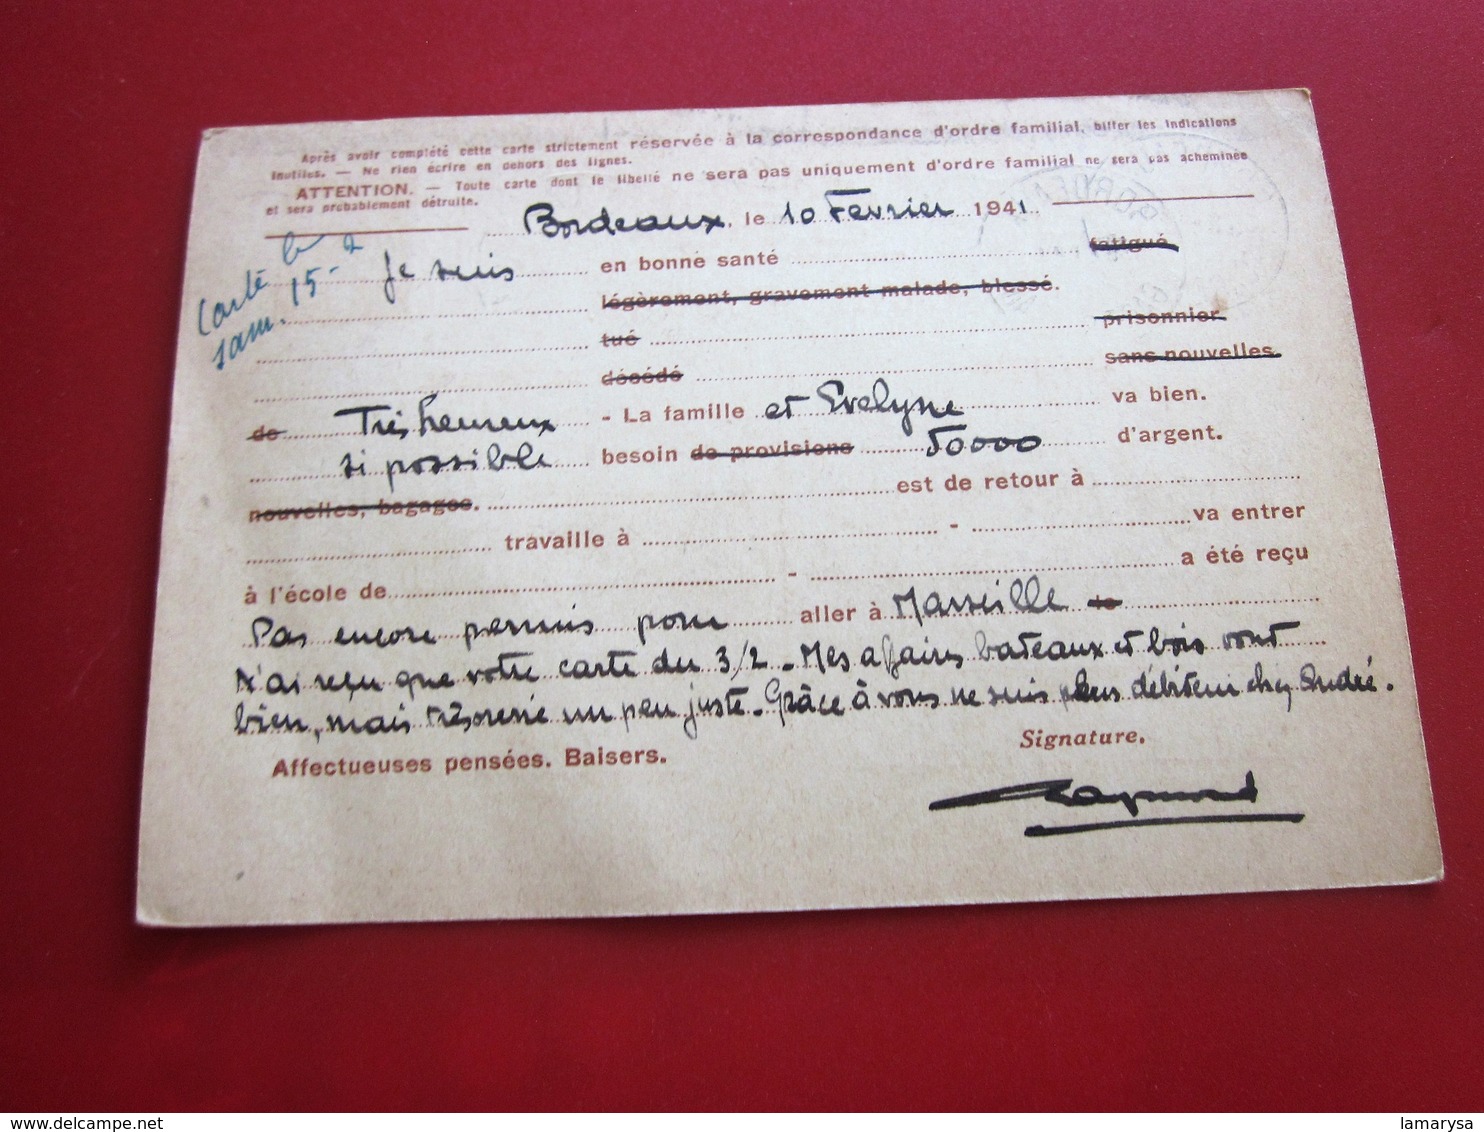 Après avoir complété cette carte strictement réservée à la correspondance d'ordre familial, biffer les indications
inutiles. — Ne rien écrire en dehors des lignes.
ATTENTION. — Toute carte dont le libellé ne sera pas uniquement d'ordre familial ne sera pas acheminée
et sera probablement détruite.
Bordeaux, le 10 Fevrier 1941
Carte
sam. 15-2
Je suis en bonne santé fatigué
légèrement, gravement malade, blessé.
tué prisonnier
décédé sans nouvelles
de Très heureux - La famille et Evelyne va bien.
si possible besoin de provisions 50000 d'argent.
nouvelles, bagages. est de retour à
travaille à - va entrer
à l'école de - a été reçu
Pas encore permis pour aller à Marseille le
N'ai reçu que votre carte du 3/2 - Mes affaires bateaux et bois vont
bien, mais trésorerie un peu juste - Grâce à vous ne suis plus débiteur chez André.
Affectueuses pensées. Baisers. Signature.
Raymond
delcampe.net
lamarysa